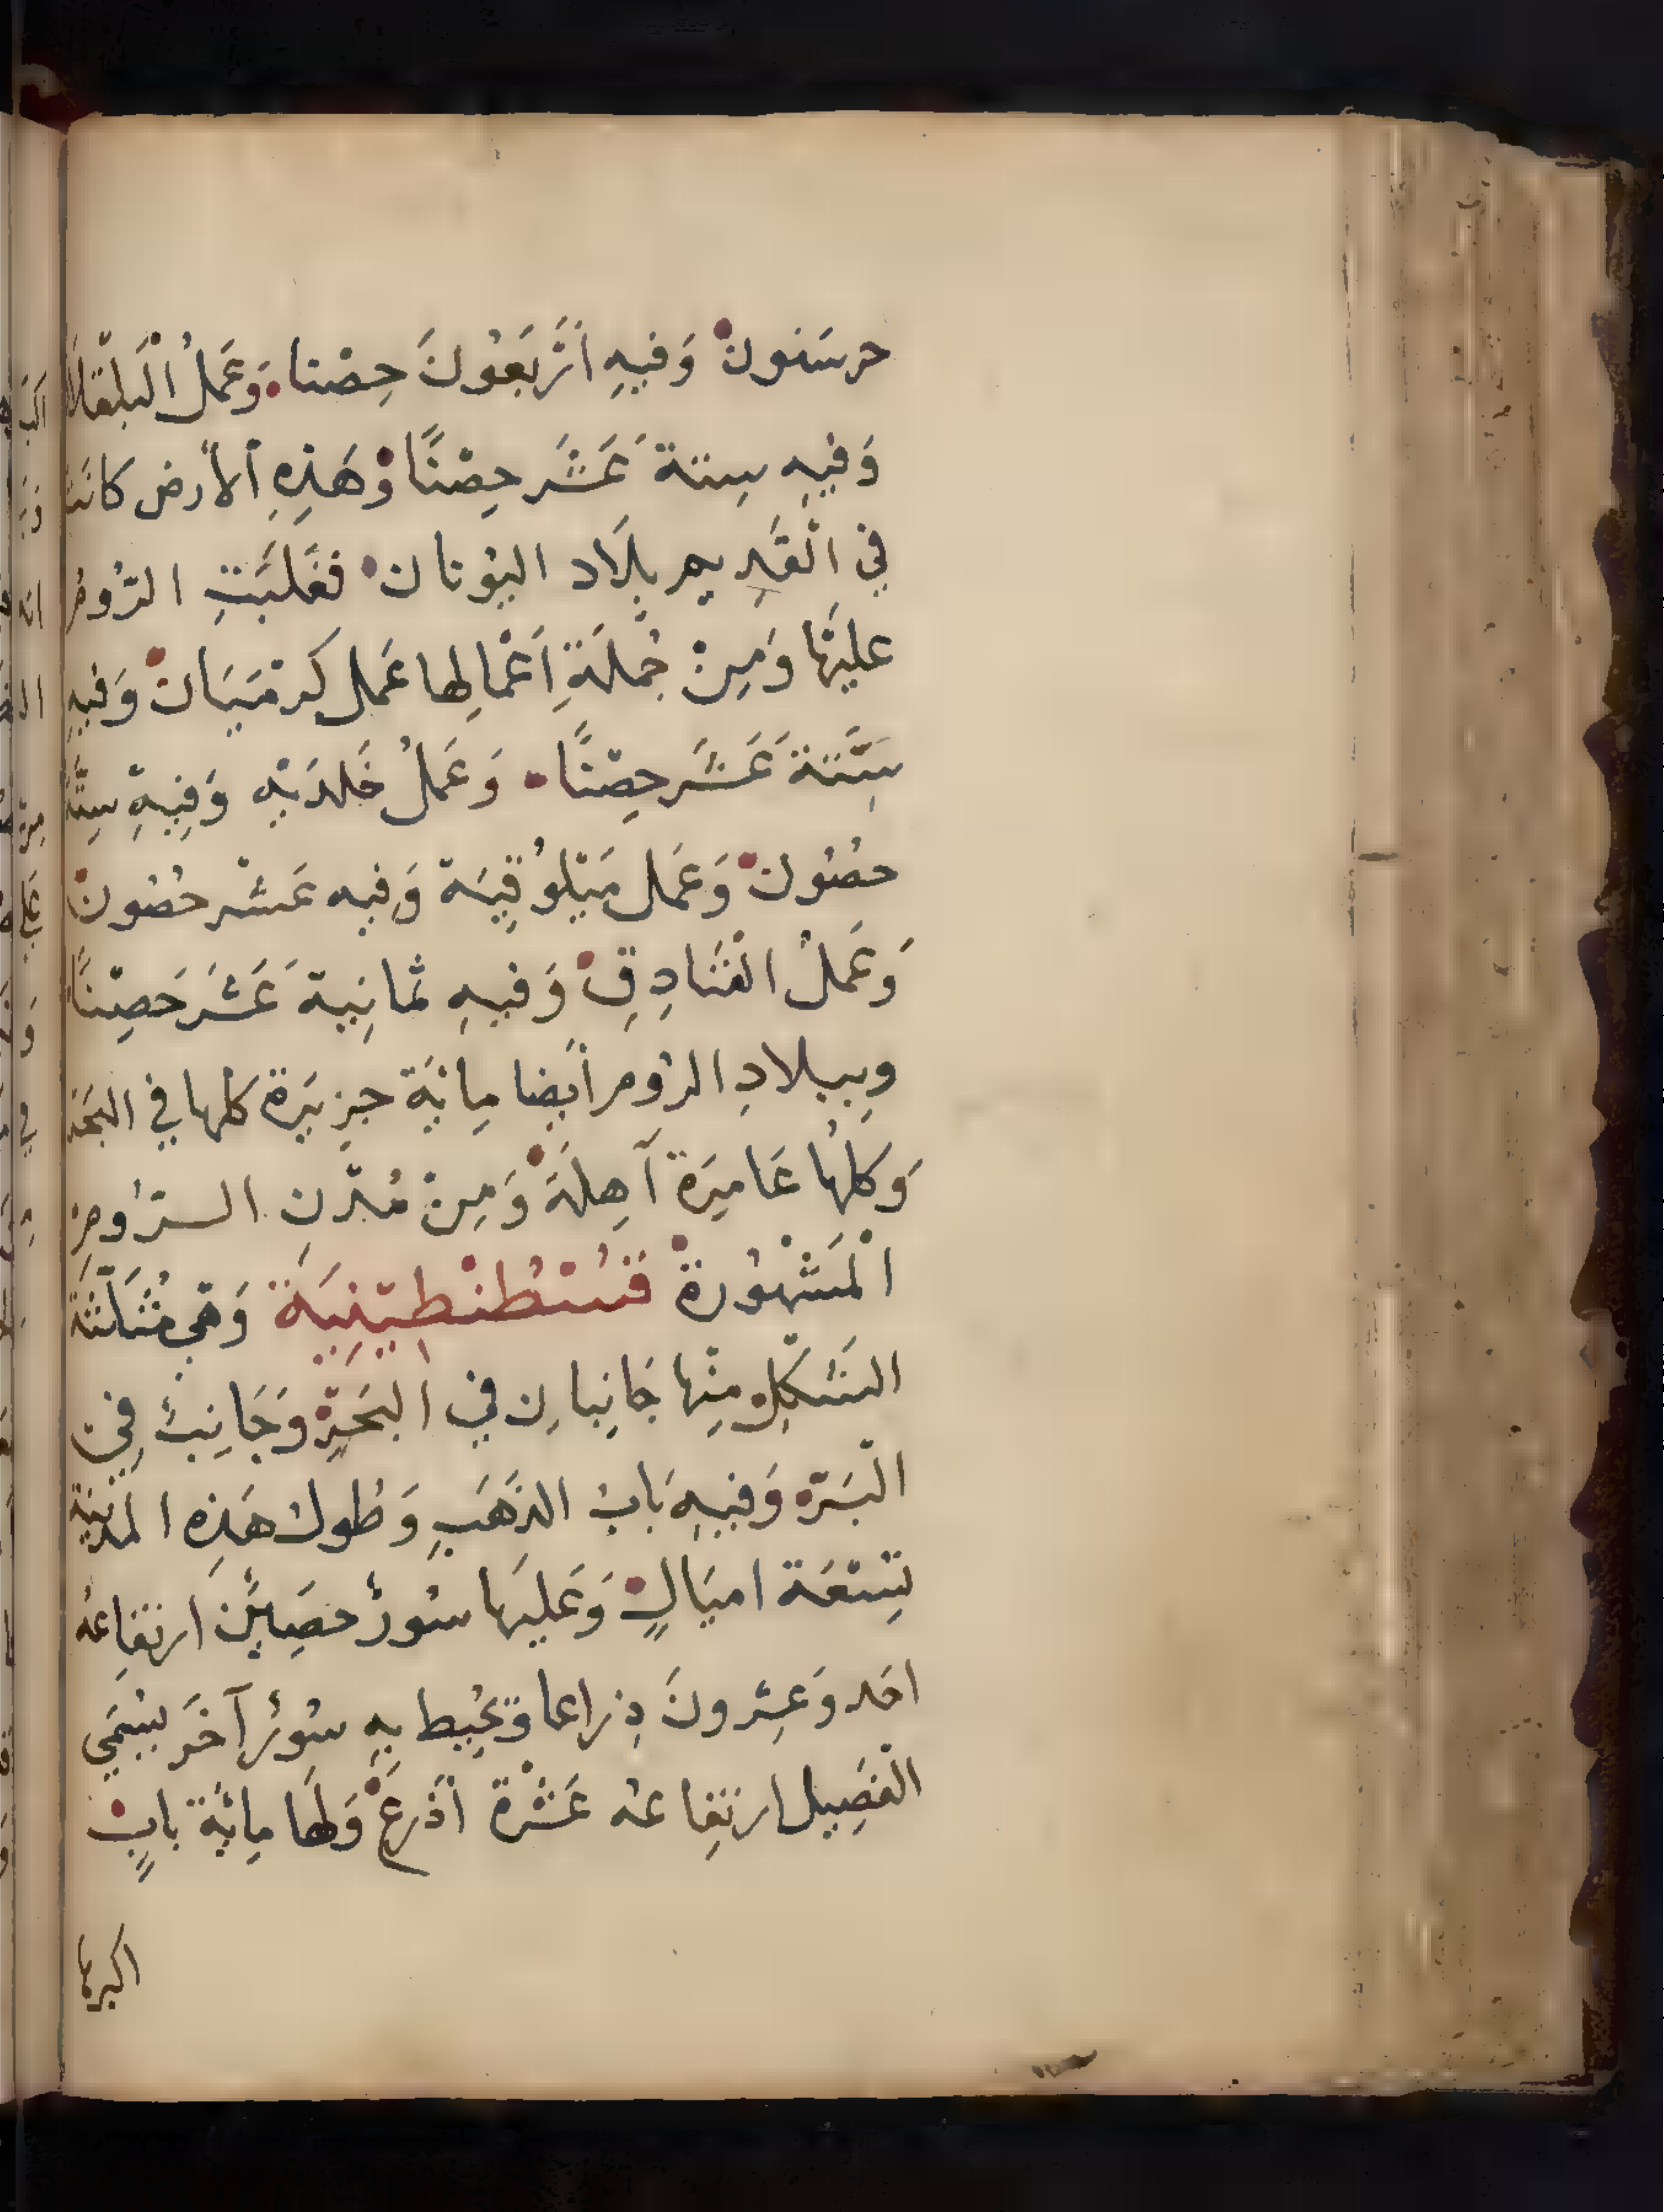 حرسنون وَفيهِ أَرْبَعُونَ حِصْنا وَعَمَلُ الْبلقلا
وَفيهِ ستة عَشَر حِصْنًا وَهَذِهِ الأرض كانَت
في الْقَدِيم بِلَاد اليُونان فَغَلَبَتِ الرُّومُ
عليْهَا وَمِنْ جُملَةِ أَعْمالِها عَمل كرمَيَان وَفيهِ
سِتَّةَ عَشَر حِصْنًا وَعَمَلُ خَلدَيَه وَفِيهِ سِتَّة
حصُون وَعَمَل سَيْلُوقِيَة وَفيه عَشْر حصُون
وَعَمَلُ الْفَنَادِقِ وَفيهِ ثمانِية عَشَر حَصِنًا
وبِبِلادِ الرُوم أَيضا مِائة جزيرَة كلها في البَحْر
وَكلهَا عَامِرَة آهِلَةْ وَمِنْ مُدُنِ الرُّومِ
الْمَشْهُورة قسْطُنْطِينِيَة وَهِي مُثَلَّثَة
الشَكلِ مِنْها جَانِبانِ في البَحْرِ وَجَانِبٌ فِي
الْبَرِّ وَفيهِ بَابُ الذهَبِ وَطُول هَذِهِ المدينة
تِسْعَة اميَالٍ وَعَليهَا سُورٌ حصِينٌ ارتفاعهُ
احَد وَعِشرونَ ذِراعا وَيُحِيط بِهِ سُورٌ آخَرَ يسُمَى
الفَصِيل ارتفاعهُ عَشْرة أَذْرعْ وَلهَا مِائة بابٍ
اكبرها